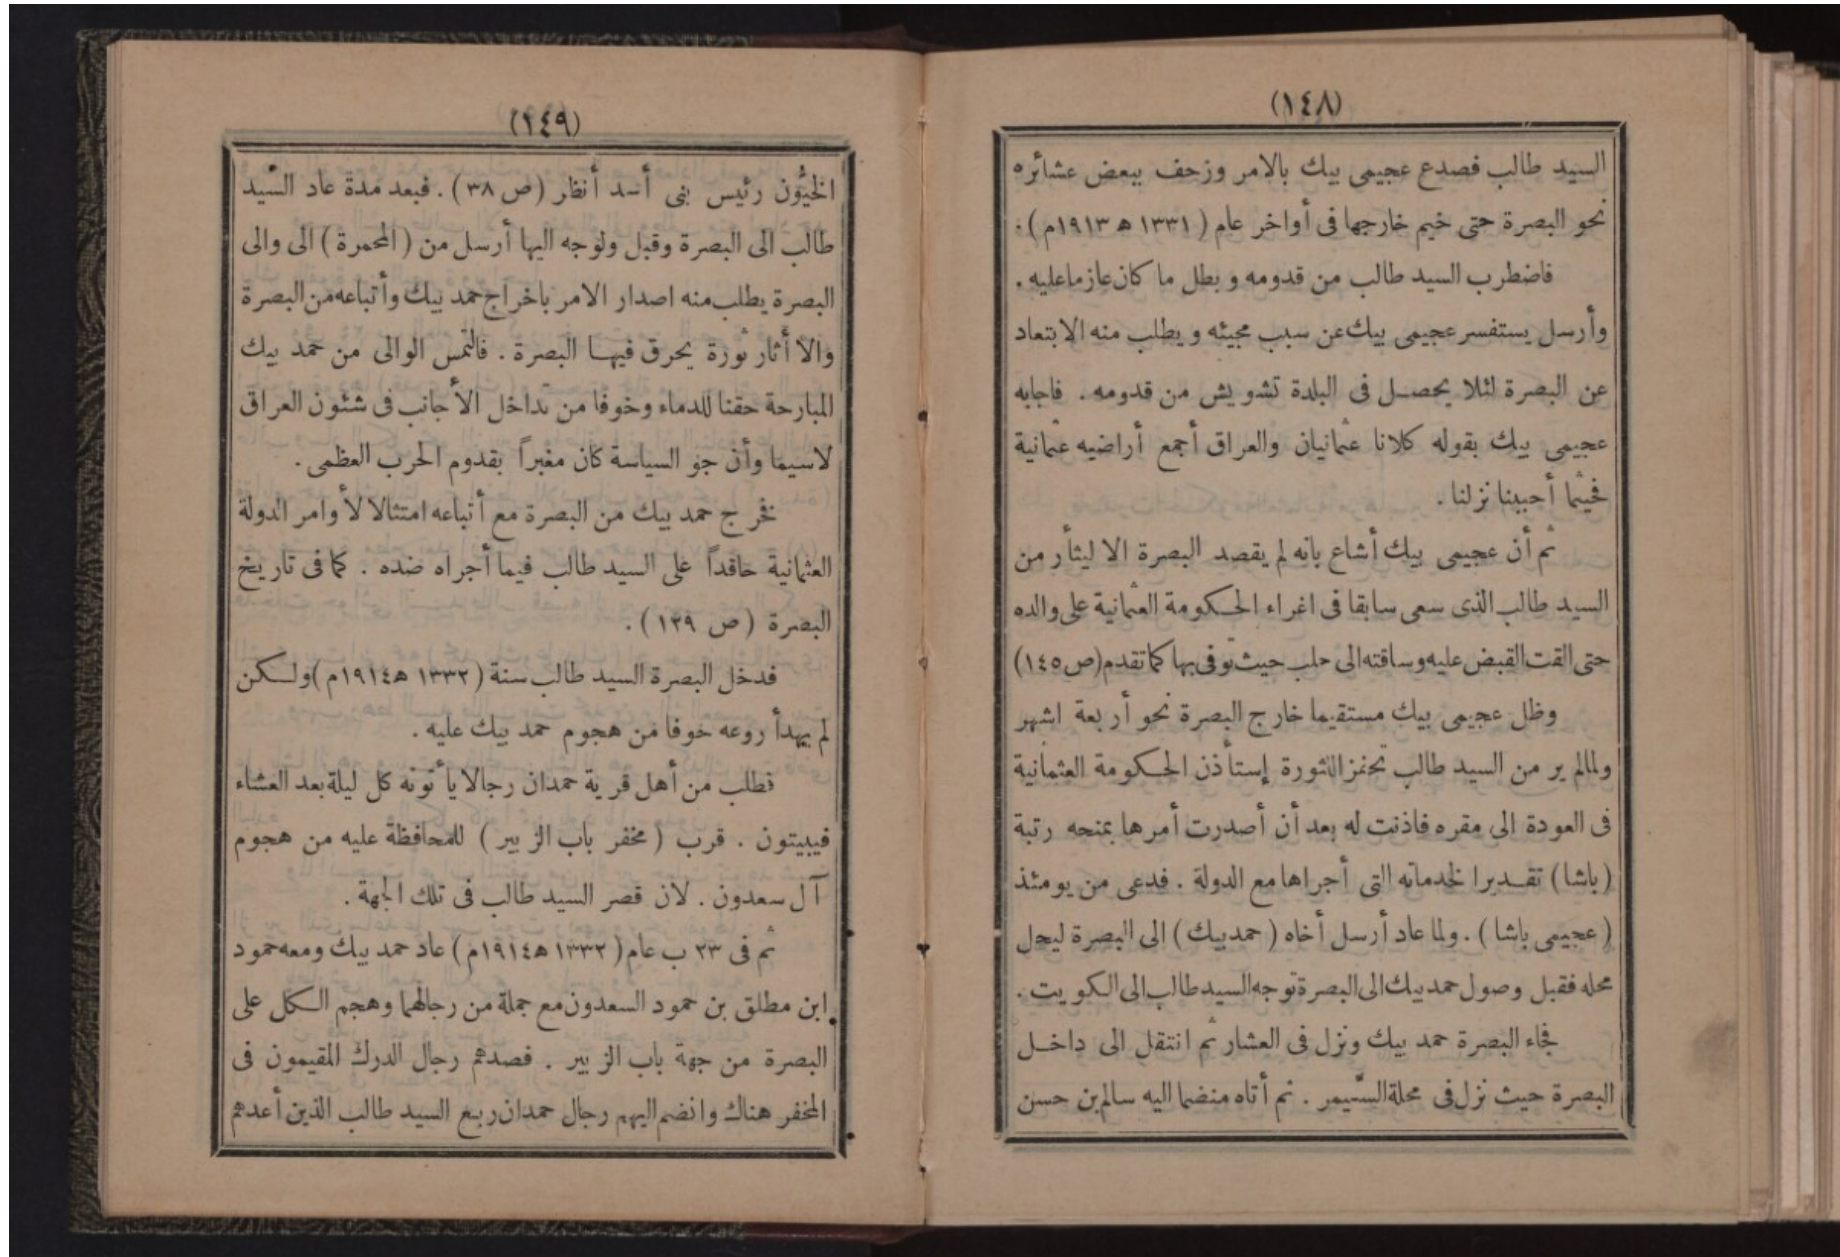 (١٤٨)
السيد طالب فصدع عجيمى بيك بالامر وزحف ببعض عشائره
نحو البصرة حتى خيم خارجها فى أواخر عام ( ١٣٣١ ه ١٩١٣م ) .
فاضطرب السيد طالب من قدومه و بطل ما كان عازما عليه .
وأرسل يستفسر عجيمى بيك عن سبب مجيئه و يطلب منه الابتعاد
عن البصرة لئلا يحصل فى البلدة تشويش من قدومه . فاجابه
عجيمى بيك بقوله كلانا عثمانيان والعراق أجمع أراضيه عثمانية
فحيثما أحببنا نزلنا .
ثم أن عجيمى بيك أشاع بانه لم يقصد البصرة الا ليثأر من
السيد طالب الذى سعى سابقا فى اغراء الحكومة العثمانية على والده
حتى القت القبض عليه وساقته الى حلب حيث توفى بها كما تقدم (ص ١٤٥)
وظل عجيمى بيك مستقيما خارج البصرة نحو أربعة اشهر
ولما لم ير من السيد طالب تحفز الثورة إستأذن الحكومة العثمانية
فى العودة الى مقره فاذنت له بعد أن أصدرت أمرها بمنحه رتبة
( باشا ) تقديرا لخدماته التى أجراها مع الدولة . فدعى من يومئذ
( عجيمى باشا ) . ولما عاد أرسل أخاه ( حمد بيك ) الى البصرة ليحل
محله فقبل وصول حمد بيك الى البصرة توجه السيد طالب الى الكويت .
فجاء البصرة حمد بيك ونزل فى العشار ثم انتقل الى داخل
البصرة حيث نزل فى محلة السَّيمر . ثم أتاه منضما اليه سالم بن حسن
(١٤٩)
الخيُّون رئيس بنى أسد أنظر (ص ٣٨) . فبعد مدة عاد السَّيد
طالب الى البصرة وقبل ولوجه اليها أرسل من ( المحمرة ) الى والى
البصرة يطلب منه اصدار الامر باخراج حمد بيك وأتباعه من البصرة
والا أثار ثورة يحرق فيها البصرة . فالتمس الوالى من حمد بيك
المبارحة حقنا للدماء وخوفا من تداخل الأجانب فى شئون العراق
لاسيما وأن جو السياسة كان مغبراً بقدوم الحرب العظمى .
فخرج حمد بيك من البصرة مع أتباعه امتثالا لأوامر الدولة
العثمانية حاقداً على السيد طالب فيما أجراه ضده . كما فى تاريخ
البصرة ( ص ١٣٩ ) .
فدخل البصرة السيد طالب سنة ( ١٣٣٢ ه ١٩١٤م ) ولكن
لم يهدأ روعه خوفا من هجوم حمد بيك عليه .
فطلب من أهل قرية حمدان رجالا يأتونه كل ليلة بعد العشاء
فيبيتون . قرب ( مخفر باب الزبير ) للمحافظة عليه من هجوم
آل سعدون . لان قصر السيد طالب فى تلك الجهة .
ثم فى ٢٣ ب عام ( ١٣٣٢ ه ١٩١٤م ) عاد حمد بيك ومعه حمود
ابن مطلق بن حمود السعدون مع جملة من رجالهما وهجم الكل على
البصرة من جهة باب الزبير . فصدهم رجال الدرك المقيمون فى
المخفر هناك وانضم اليهم رجال حمدان ربع السيد طالب الذين أعدهم